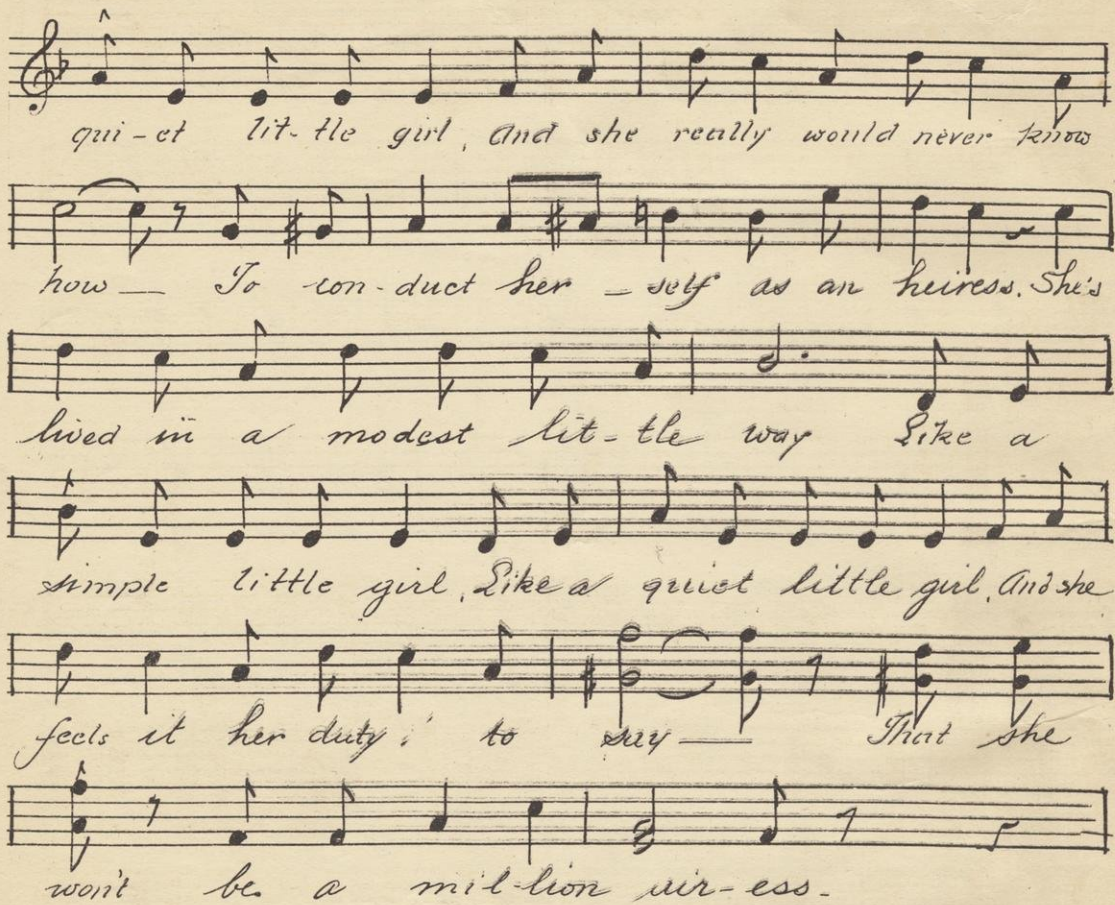 qui-et lit-tle girl, And she really would never know
how — To con-duct her-self as an heiress. She's
lived in a modest lit-tle way Like a
simple little girl, Like a quiet little girl, And she
feels it her duty to say — That she
won't be a mil-lion air-ess.